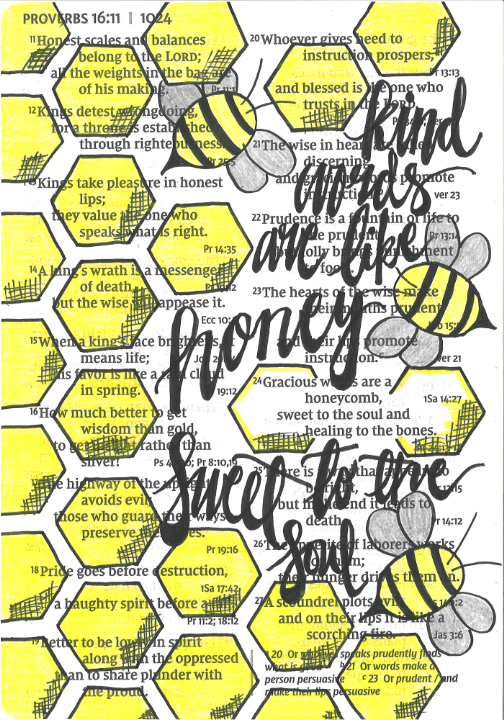 PROVERBS 16:11 | 1024
11 Honest scales and balances
belong to the LORD;
all the weights in the bag are
of his making. Pr 11:1
12 Kings detest wrongdoing,
for a throne is established
through righteousness. Pr 25:5
13 Kings take pleasure in honest
lips;
they value the one who
speaks what is right.
Pr 14:35
14 A king's wrath is a messenger
of death,
but the wise will appease it.
Ecc 10:4
15 When a king's face brightens, it
means life;
his favor is like a rain cloud
in spring. 19:12
16 How much better to get
wisdom than gold,
to get insight rather than
silver! Ps 8:10,19
The highway of the upright
avoids evil;
those who guard their ways
preserve their lives.
Pr 19:16
18 Pride goes before destruction,
1Sa 17:42
a haughty spirit before a
Pr 11:2; 18:12
19 Better to be lowly in spirit
along with the oppressed
than to share plunder with
the proud.
20 Whoever gives heed to
instruction prospers,
Pr 13:13
and blessed is the one who
trusts in the LORD.
21 The wise in heart are called
discerning,
and gracious words promote
instruction. ver 23
22 Prudence is a fountain of life to
the prudent, Pr 13:14
but folly brings punishment
to fools.
23 The hearts of the wise make
their mouths prudent,
and their lips promote
instruction. ver 21
24 Gracious words are a
honeycomb, 1Sa 14:27
sweet to the soul and
healing to the bones.
25 There is a way that appears to
be right,
but in the end it leads to
death. Pr 14:12
26 The appetite of laborers works
for them;
their hunger drives them on.
27 A scoundrel plots evil,
and on their lips it is like a
scorching fire. Jas 3:6
20 Or speaks prudently finds
what is good b 21 Or words make a
person persuasive c 23 Or prudent / and
make their lips persuasive
kind
words
are like
honey
Sweet to the
Soul